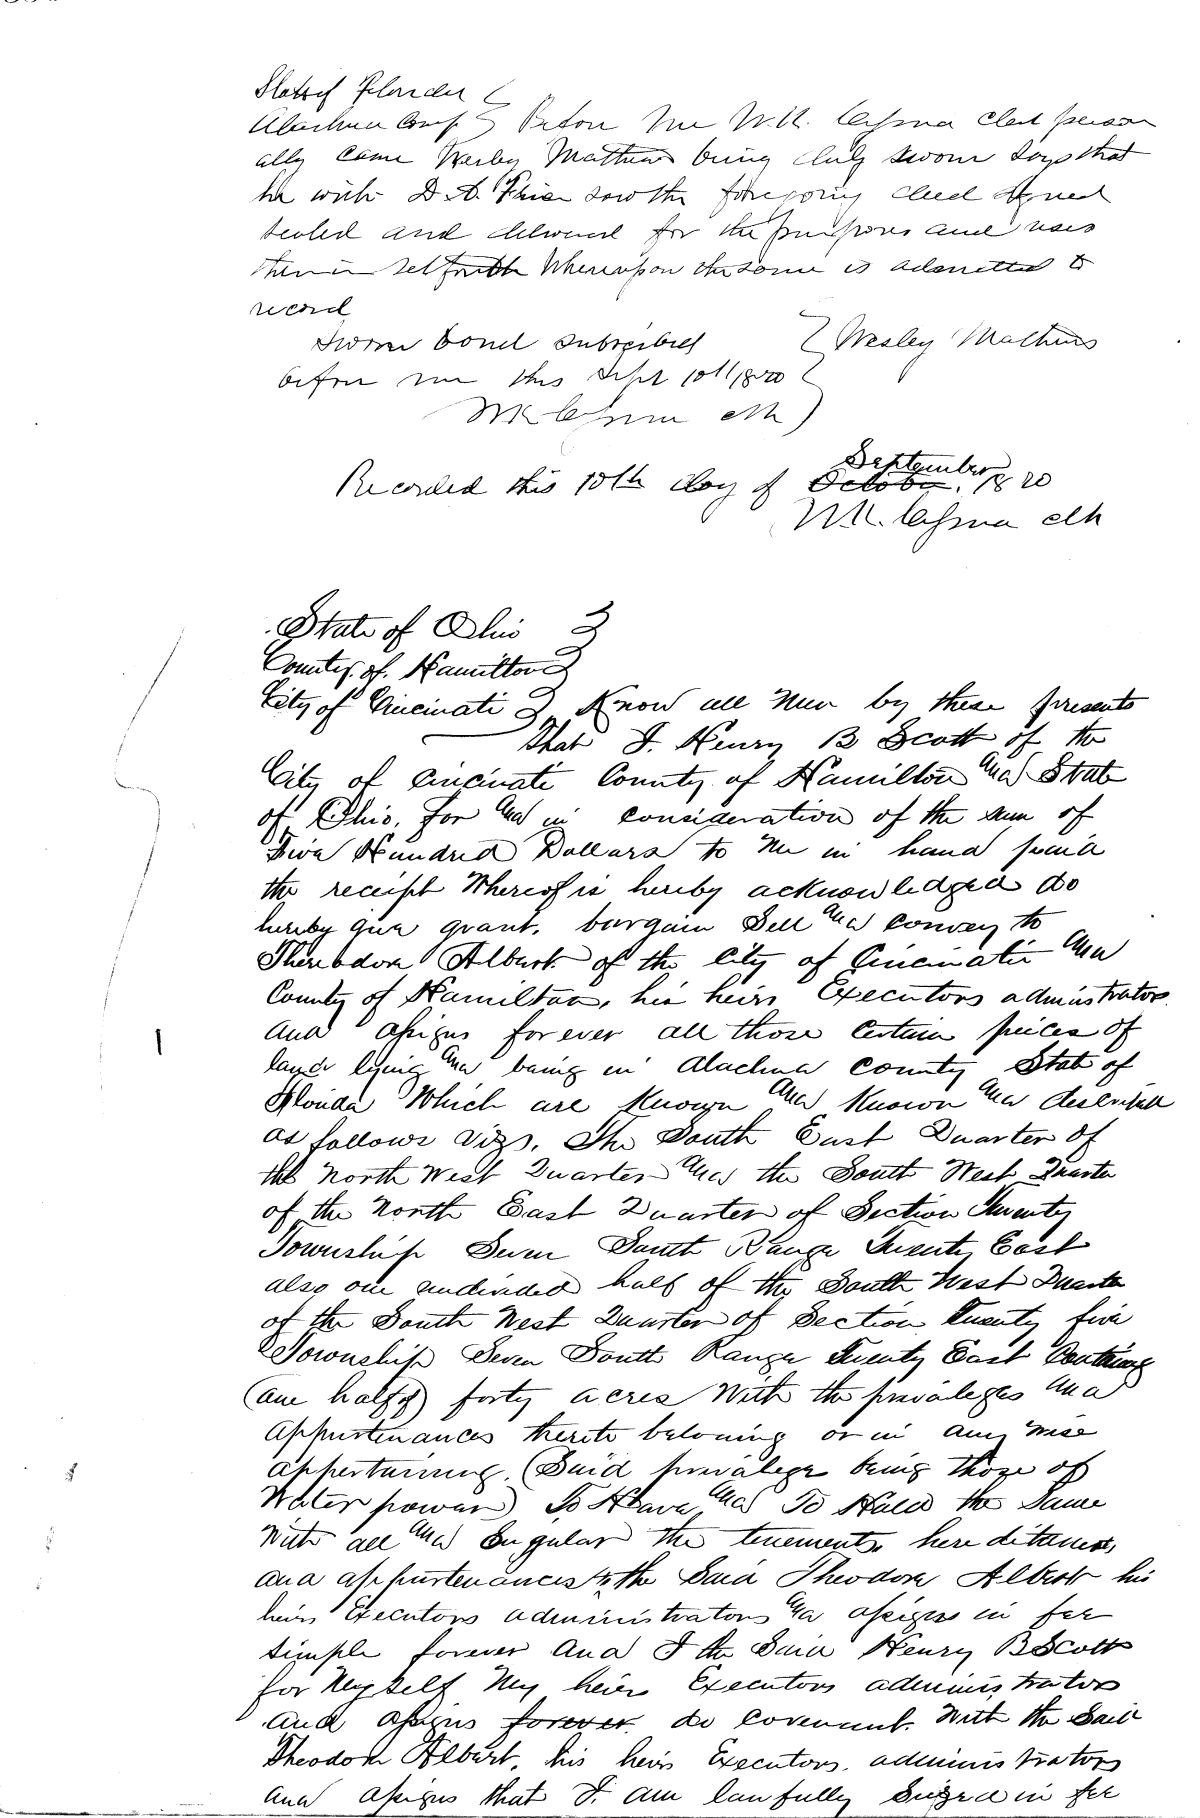 State of Florida
Alachua County Before me W.K. Cessna Clerk person
ally came Wesley Mathews being duly sworn says that
he with D.A. saw the foregoing deed signed
sealed and delivered for the purposes and uses
therein set forth Whereupon the same is admitted to
record
Sworn to and subscribed Wesley Mathews
before me this Sept 10th 1870
W K Cessna clk
September
Recorded this 10th day of October. 1870
W.K. Cessna clk
State of Ohio
County of Hamilton
City of Cincinati Know all Men by these presents
that I. Henry B Scott of the
City of Cincinati County of Hamilton and State
of Ohio, for and in consideration of the sum of
Five Hundred Dollars to Me in hand paid
the receipt Whereof is hereby acknowledged do
hereby give grant, bargain Sell and convey to
Theodore Albert of the City of Cincinatti and
County of Hamilton, his heirs Executors administrators
and assigns forever all those certain peices of
land lying and being in Alachua County State of
Florida Which are Known and Known and described
as follows vizs. The South East Quarter of
the North West Quarter and the South West Quarter
of the North East Quarter of Section Twenty
Township Seven South Range Twenty East
also one undivided half of the South West Quarter
of the South West Quarter of Section twenty five
Township Seven South Range Twenty East Containg
(one half of) forty acres With the privaleges and
appurtenances thereto beloning or in any wise
appertaining. (Said privalege being those of
Water power) To Have and To Hold the Same
With all and Singular the tenements, hereditaments,
and appurtenances to the Said Theodore Albert his
heirs Executors administrators and assigns in fee
simple forever And I the Said Henry B Scott
for Myself My heirs Executors administrators
and assigns forever do covenant With the Said
Theodore Albert, his heirs Executors, administrators
and assigns that I. am lawfully Seized in fee